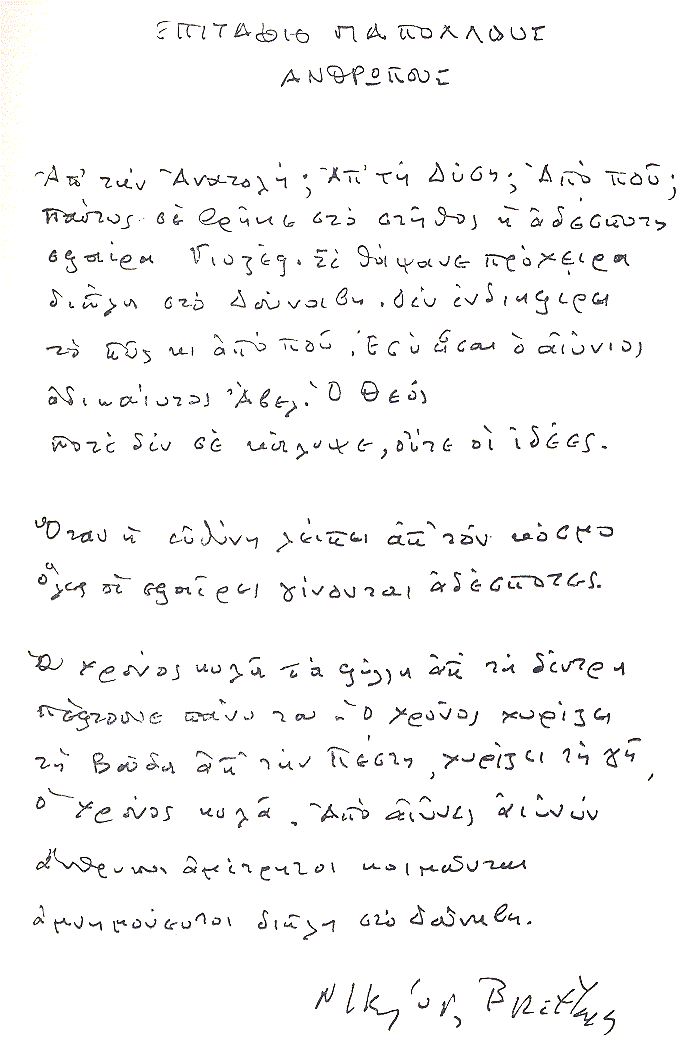 ΕΠΙΤΑΦΙΟ ΓΙΑ ΠΟΛΛΟΥΣ
ΑΝΘΡΩΠΟΥΣ
Ἀπ' τήν Ἀνατολή; Ἀπ' τή Δύση; Ἀπό ποῦ;
πάντως σέ βρῆκε στό στῆθος ἡ ἀδέσποτη
σφαίρα Σέ θάψανε πρόχειρα
δίπλα στό Δούναβη. Δέν ἐνδιαφέρει
τό πῶς κι ἀπό ποῦ. Ἐσύ εἶσαι ὁ αἰώνιος
ἀδικαίωτος Ἄβελ. Ὁ Θεός
ποτέ δέν σέ κάλυψε, οὔτε οἱ ἰδέες.
Ὅταν ἡ εὐθύνη λείπει ἀπ' τόν κόσμο
ὅλες οἱ σφαῖρες γίνονται ἀδέσποτες.
Ὁ χρόνος κυλᾶ τά φύλλα ἀπ' τά δέντρα
πέφτουνε πάνω του Ὁ χρόνος χωρίζει
τή Βούδα ἀπ' τήν Πέστη, χωρίζει τή γῆ,
ὁ χρόνος κυλᾶ. Ἀπό αἰῶνες αἰώνων
ἄνθρωποι ἀμέτρητοι κοιμοῦνται
ἀμνημόνευτοι δίπλα στό Δούναβη.
Νικηφόρος Βρεττάκος